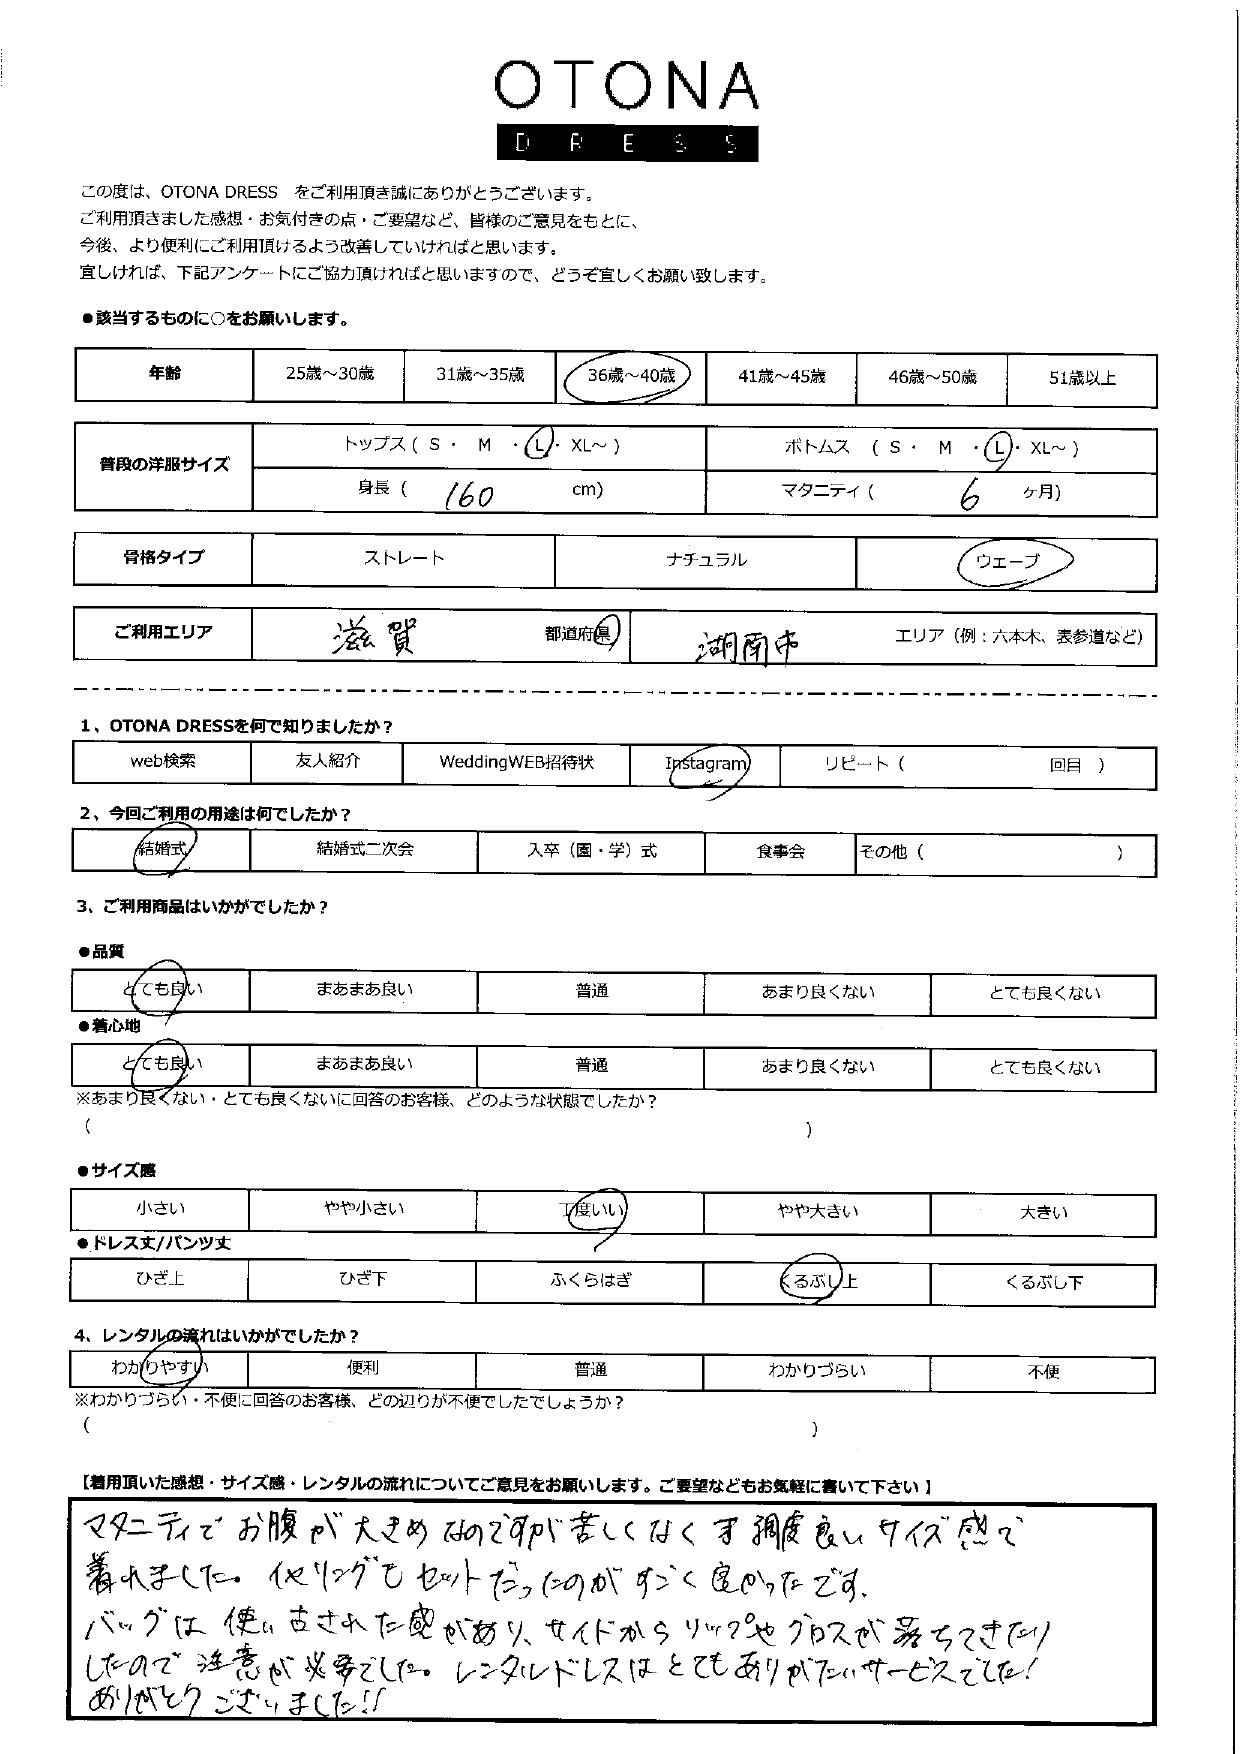 OTONA
DRESS
この度は、OTONA DRESS　をご利用頂き誠にありがとうございます。
ご利用頂きました感想・お気付きの点・ご要望など、皆様のご意見をもとに、
今後、より便利にご利用頂けるよう改善していければと思います。
宜しければ、下記アンケートにご協力頂ければと思いますので、どうぞ宜しくお願い致します。
●該当するものに○をお願いします。
年齢 25歳～30歳 31歳～35歳 36歳～40歳 41歳～45歳 46歳～50歳 51歳以上
普段の洋服サイズ トップス ( S ・ M ・ L ・ XL～ ) ボトムス ( S ・ M ・ L ・ XL～ )
身長 ( 160 cm) マタニティ ( 6 ヶ月)
骨格タイプ ストレート ナチュラル ウェーブ
ご利用エリア 滋賀 都道府県 湖南市 エリア（例：六本木、表参道など）
1、OTONA DRESSを何で知りましたか？
web検索 友人紹介 WeddingWEB招待状 Instagram リピート ( 回目 )
2、今回ご利用の用途は何でしたか？
結婚式 結婚式二次会 入卒（園・学）式 食事会 その他 ( )
3、ご利用商品はいかがでしたか？
●品質
とても良い まあまあ良い 普通 あまり良くない とても良くない
●着心地
とても良い まあまあ良い 普通 あまり良くない とても良くない
※あまり良くない・とても良くないに回答のお客様、どのような状態でしたか？
( )
●サイズ感
小さい やや小さい 丁度いい やや大きい 大きい
●ドレス丈/パンツ丈
ひざ上 ひざ下 ふくらはぎ くるぶし上 くるぶし下
4、レンタルの流れはいかがでしたか？
わかりやすい 便利 普通 わかりづらい 不便
※わかりづらい・不便に回答のお客様、どの辺りが不便でしたでしょうか？
( )
【着用頂いた感想・サイズ感・レンタルの流れについてご意見をお願いします。ご要望などもお気軽に書いて下さい】
マタニティで お腹が 大きめ なのですが 苦しくなくす 調度良い サイズ感で
着れました。イヤリングも セットだったのが すごく 良かったです.
バッグは 使い古された感があり、サイドから リップや グロスが 落ちてきたり
したので 注意が 必要でした。レンタルドレスは とても ありがたい サービスでした!
ありがとう ございました!!